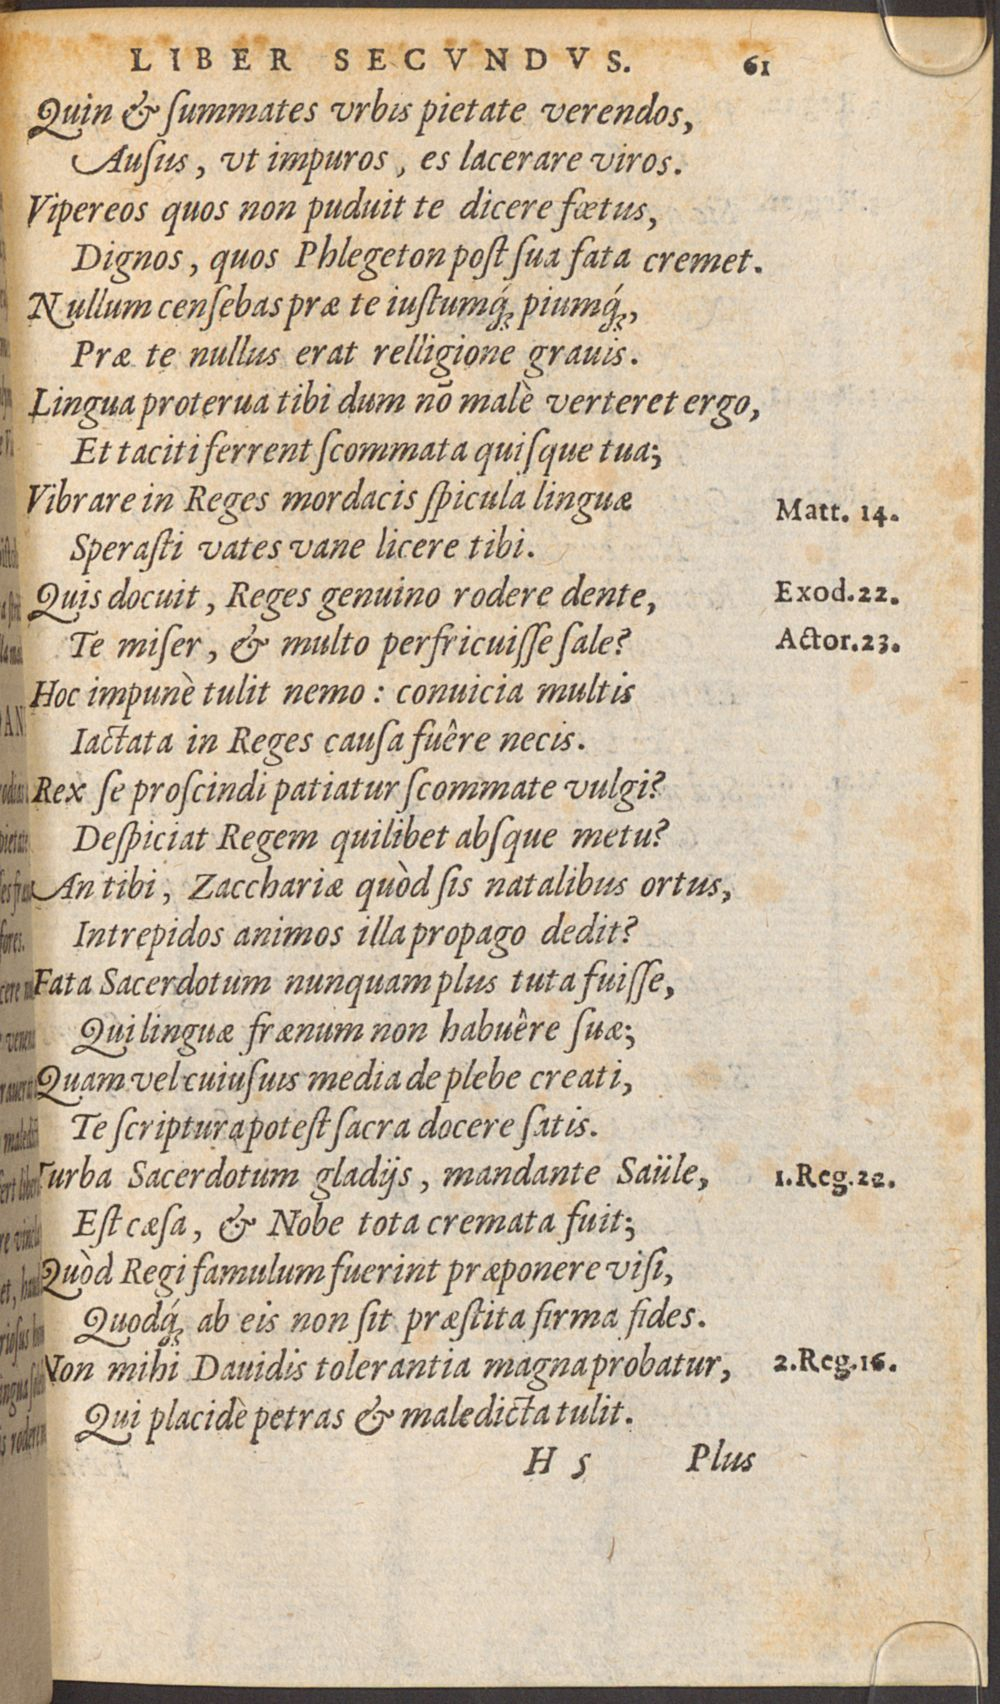 LIBER SECVNDVS. 61
Quin & ſummates vrbis pietate verendos,
Auſus, vt impuros, es lacerare viros.
Vipereos quos non puduit te dicere fœtus,
Dignos, quos Phlegeton poſt ſua fata cremet.
Nullum cenſebas præ te iuſtumq́;, piumq́;,
Præ te nullus erat relligione grauis.
Lingua proterua tibi dum nō malè verteret ergo,
Et taciti ferrent ſcommata quiſque tua;
Vibrare in Reges mordacis ſpicula linguæ
Matt. 14.
Speraſti vates vane licere tibi.
Quis docuit, Reges genuino rodere dente,
Exod.22.
Te miſer, & multo perfricuiſſe ſale?
Actor.23.
Hoc impunè tulit nemo: conuicia multis
Iactata in Reges cauſa fuêre necis.
Rex ſe proſcindi patiatur ſcommate vulgi?
Deſpiciat Regem quilibet abſque metu?
An tibi, Zacchariæ quòd ſis natalibus ortus,
Intrepidos animos illa propago dedit?
Fata Sacerdotum nunquam plus tuta fuiſſe,
Qui linguæ frænum non habuêre ſuæ;
Quam vel cuiuſuis media de plebe creati,
Te ſcriptura poteſt ſacra docere ſatis.
Turba Sacerdotum gladijs, mandante Saüle,
1.Reg.22.
Eſt cæſa, & Nobe tota cremata fuit;
Quòd Regi famulum fuerint præponere viſi,
Quodq́; ab eis non ſit præſtita firma fides.
Non mihi Dauidis tolerantia magna probatur,
2.Reg.16.
Qui placidè petras & maledicta tulit.
H 5 Plus